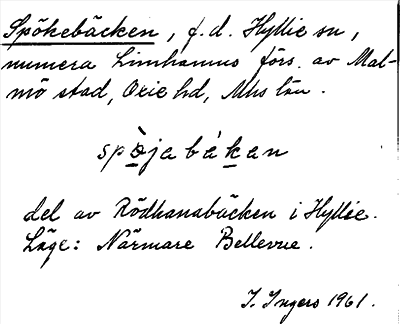 Spökebäcken, f.d. Hyllie sn,
numera Limhamns förs. av Mal-
mö stad, Oxie hd, Mhs län.
spö̀jabákan
del av Rödhanabäcken i Hyllie.
Läge: Närmare Bellevue.
I. Ingers 1961.